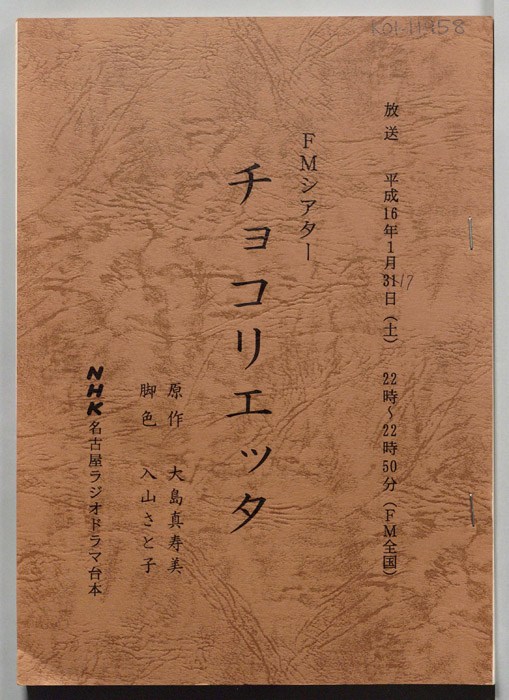 K01-11958
放送 平成16年1月31日(土) 22時～22時50分(FM全国)
17
FMシアター
チョコリエッタ
原作 大島真寿美
脚色 入山さと子
NHK名古屋ラジオドラマ台本